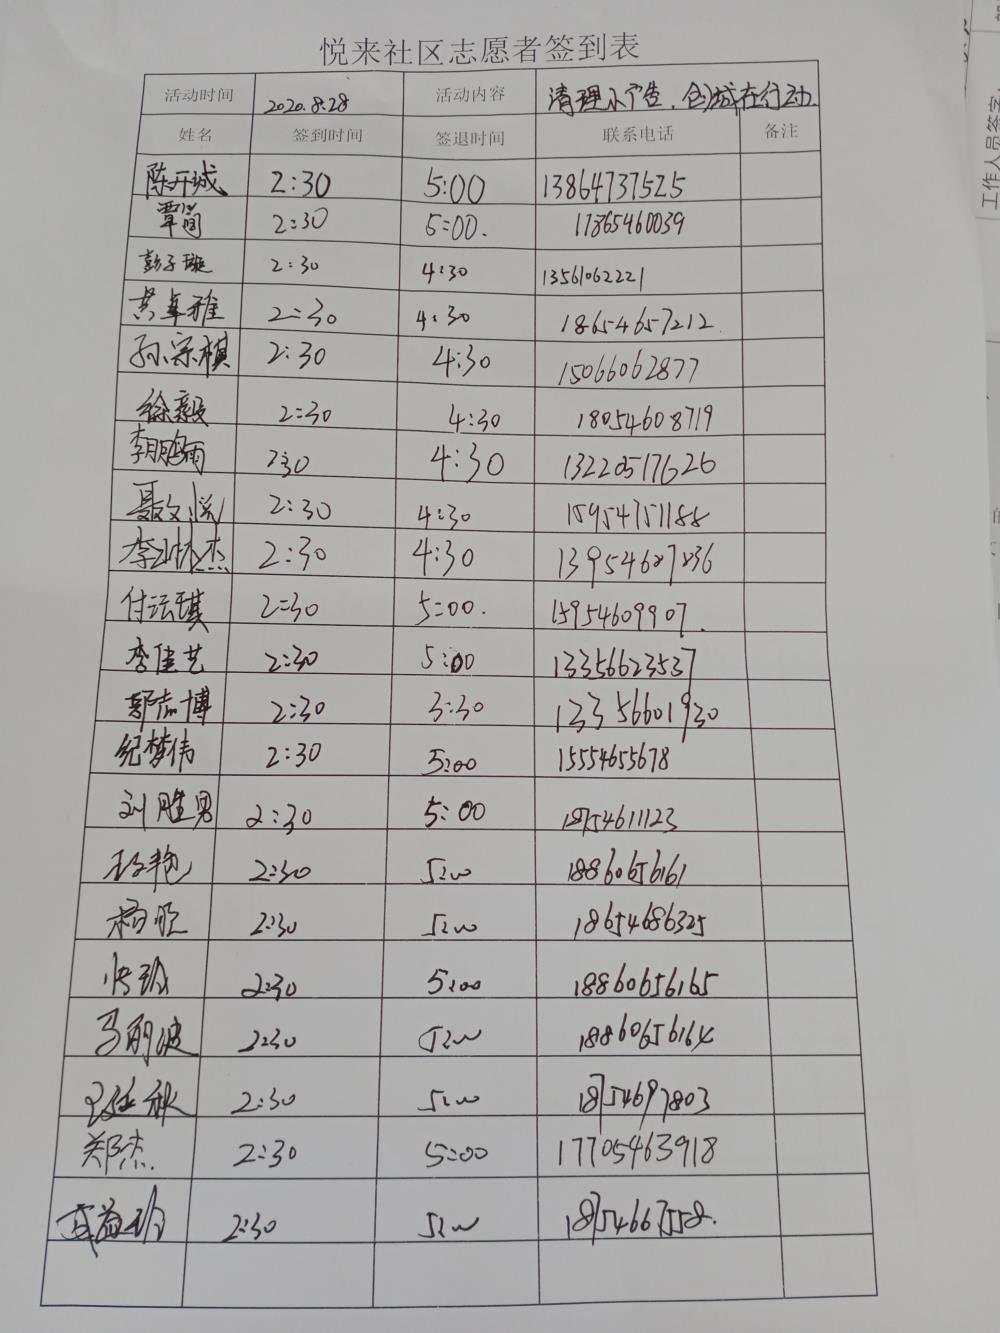 悦来社区志愿者签到表
活动时间 2020.8.28 活动内容 清理小广告,创城在行动.
姓名 签到时间 签退时间 联系电话 备注
陈开城 2:30 5:00 13864737525
覃简 2:30 5:00. 17865460039
彭子璇 2:30 4:30 13561062221
黄卓雅 2:30 4:30 18654657212
孙宗棋 2:30 4:30 15066062877
徐毅 2:30 4:30 18054608719
李鹏雨 2:30 4:30 13220517626
聂文悦 2:30 4:30 15954751188
李怀杰 2:30 4:30 13954687836
付云琪 2:30 5:00. 15954609907.
李佳艺 2:30 5:00 13356623537
郭志博 2:30 3:30 13356601930
纪梦伟 2:30 5:00 15554655678
刘胜男 2:30 5:00 18754611123
2:30 5:00 18860656161
杨 2:30 5:00 18654686325
2:30 5:00 18860656165
马丽波 2:30 5:00 18860656164
2:30 5:00 18754697803
郑杰 2:30 5:00 17705463918
2:30 5:00 18754667558.
工作人员签字